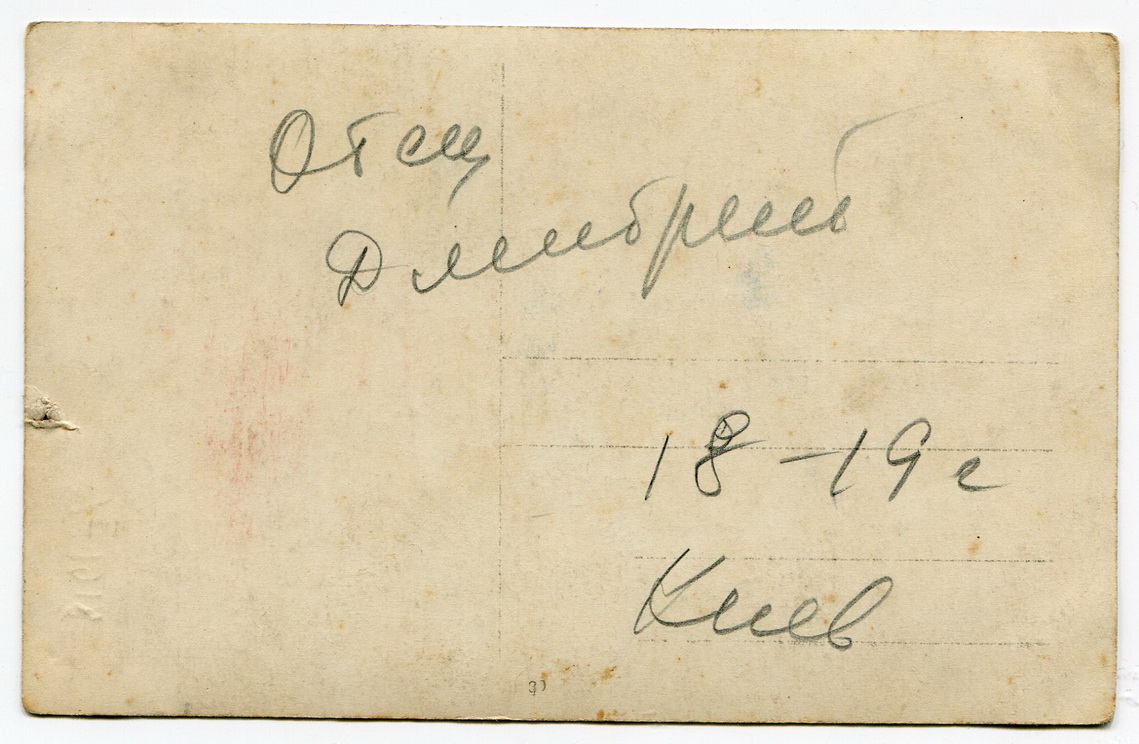 Отец
Дмитрий
18-19 г
Киев